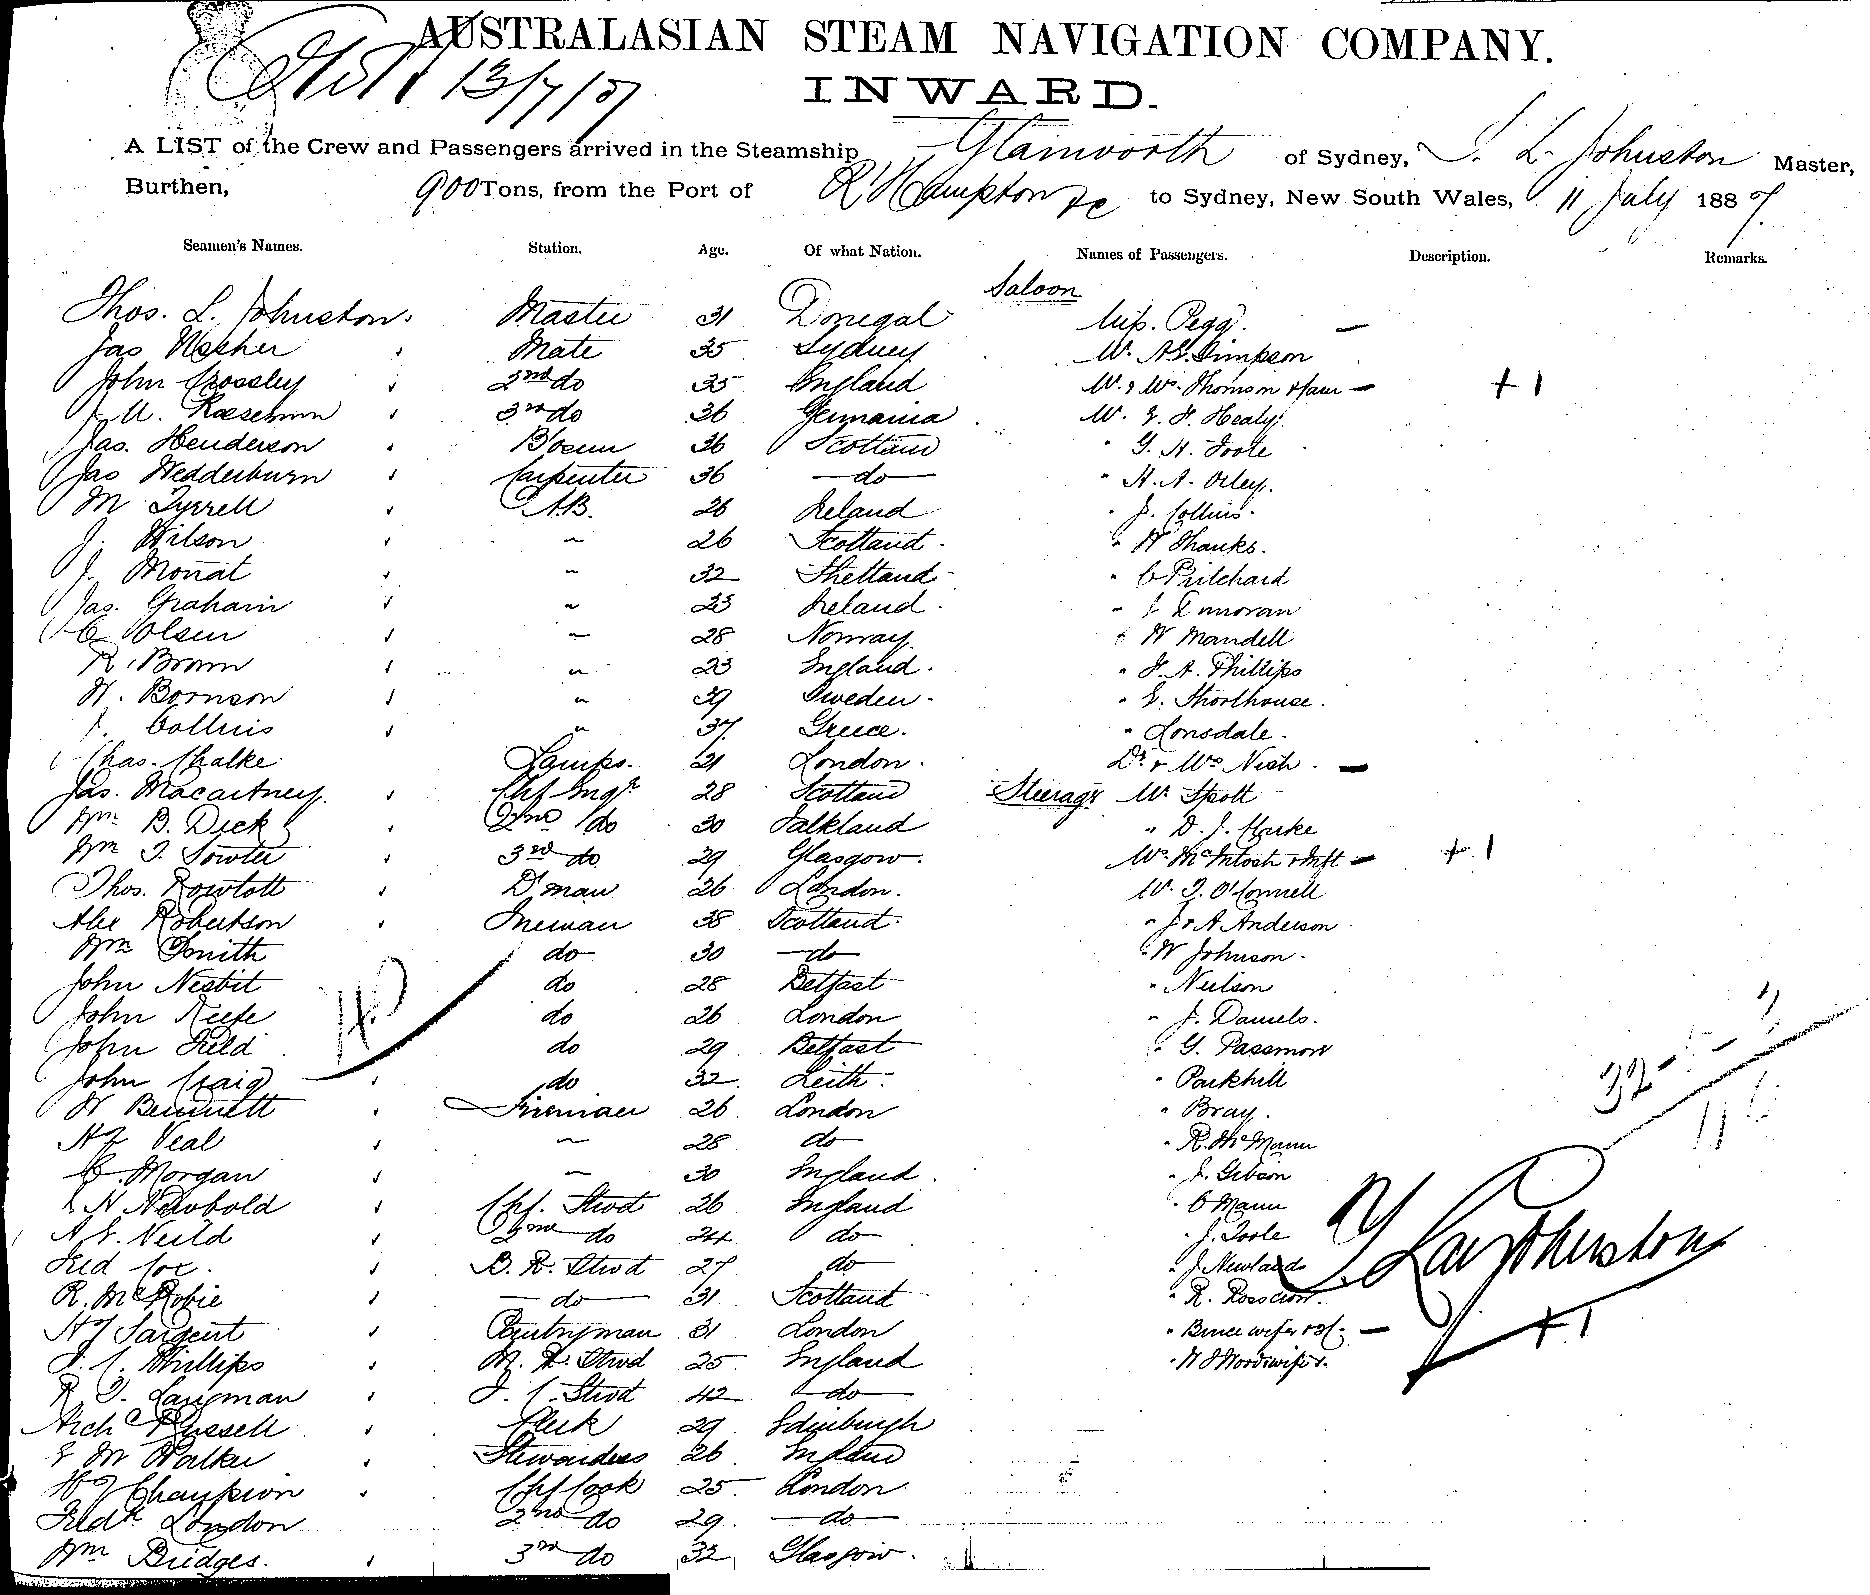 AUSTRALASIAN STEAM NAVIGATION COMPANY.
13/7/87
INWARD.
A LIST of the Crew and Passengers arrived in the Steamship Glamworth of Sydney, T. L. Johnston Master,
Burthen, 900 Tons, from the Port of R'Hampton &c to Sydney, New South Wales, 11 July 1887.
Seamen's Names. Station. Age. Of what Nation. Names of Passengers. Description. Remarks.
Saloon
Thos. L. Johnston. Master 31 Donegal Miss. Pegg. —
Jas Mate 35 Sydney Mr. Simpson
John Crossley 2nd do 35 England Mr. & Mrs. Thomson & fam — + 1
3rd do 36 Germania Mr. E. F. Healy
Jas. Henderson B'osun 36 Scotland " G. H. Toole
Jas Wedderburn Carpenter 36 — do — " H. A.
M Tyrrell A.B. 26 Ireland " J. Collins.
J. Wilson " 26 Scotland. " W Shanks.
J. Monat " 32 Shetland " C Pritchard
Jas. Graham " 23 Ireland. "
C Olsen " 28 Norway " W Mandell
R. Brown " 23 England. " F. A. Phillips
H. Bornson " 39 Sweden. " E. Shorthouse.
J. Collins " 37 Greece. " Lonsdale.
Chas. Chalke Lamps. 21 London. Dr. & Mrs Nish. —
Jas. Macartney. Chf Engr 28 Scotland Steerage Mr. Spott
Wm B. Dick 2nd do 30 Falkland " D. J. Clarke
Wm T. Sowter 3rd do 29 Glasgow. Mrs. McIntosh & Inft — + 1
Thos. Rowlatt D'man 26 London. Mr. T. O'Connell
Alex Robertson Fireman 38 Scotland " J & A Anderson
Wm Smith do 30 — do — " W Johnson.
John Nesbit do 28 Belfast " Neilson
John Keefe do 26 London " J. Daniels.
John Field do 29 Belfast " G. Passmore
John Craig do 32 Leith. " Parkhill
W Bennett Trimmer 26 London " Bray.
Hy Veal " 28 do " R. McMann
C. Morgan " 30 England. " J. Gibson
H Newbold Chf. Stwd 26 England " C Mann
A. E. Neild 2nd do 24 do " J. Toole
Fred Cox. B. R. Stwd 27 do " J Newlands
R. McRobie — do — 31 Scotland " R.
Hy Sargent Pantryman 31 London " Bruce wife & —
+ 1
J. C. Phillips M. R. Stwd 25 England
R. T. Langman F. C. Stwd 42 — do —
Richd Russell Clerk 29 Edinburgh
E M Walker Stewardess 26 England
Hy Champion Chf Cook 25 London
Fredk London 2nd do 29. — do —
Wm Bridges. 3rd do 32 Glasgow.
40
32
T. Lay Johnston